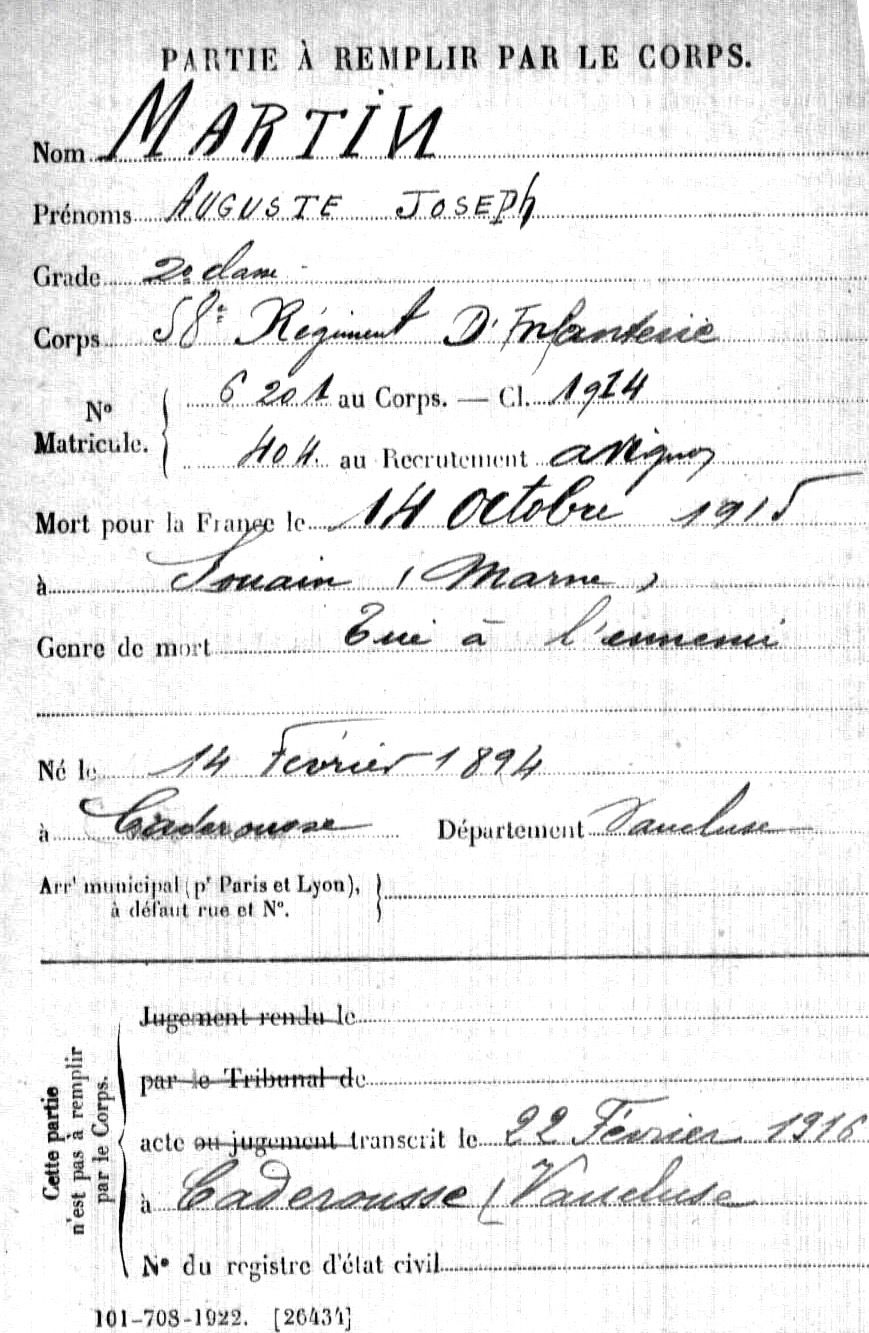 PARTIE À REMPLIR PAR LE CORPS.
Nom MARTIN
Prénoms AUGUSTE JOSEPH
Grade 2e classe
Corps 58e Régiment D'Infanterie
No Matricule. { 6 201 au Corps. — Cl. 1914
404. au Recrutement Avignon
Mort pour la France le 14 Octobre 1915
à Souain (Marne)
Genre de mort Tué à l'ennemi
Né le 14 Février 1894
à Caderousse Département Vaucluse
Arrt municipal (pr Paris et Lyon), }
à défaut rue et No.
Cette partie
n'est pas à remplir
par le Corps.
Jugement rendu le
par le Tribunal de
acte ou jugement transcrit le 22 Février 1916
à Caderousse (Vaucluse
No du registre d'état civil
101-708-1922. [26434]